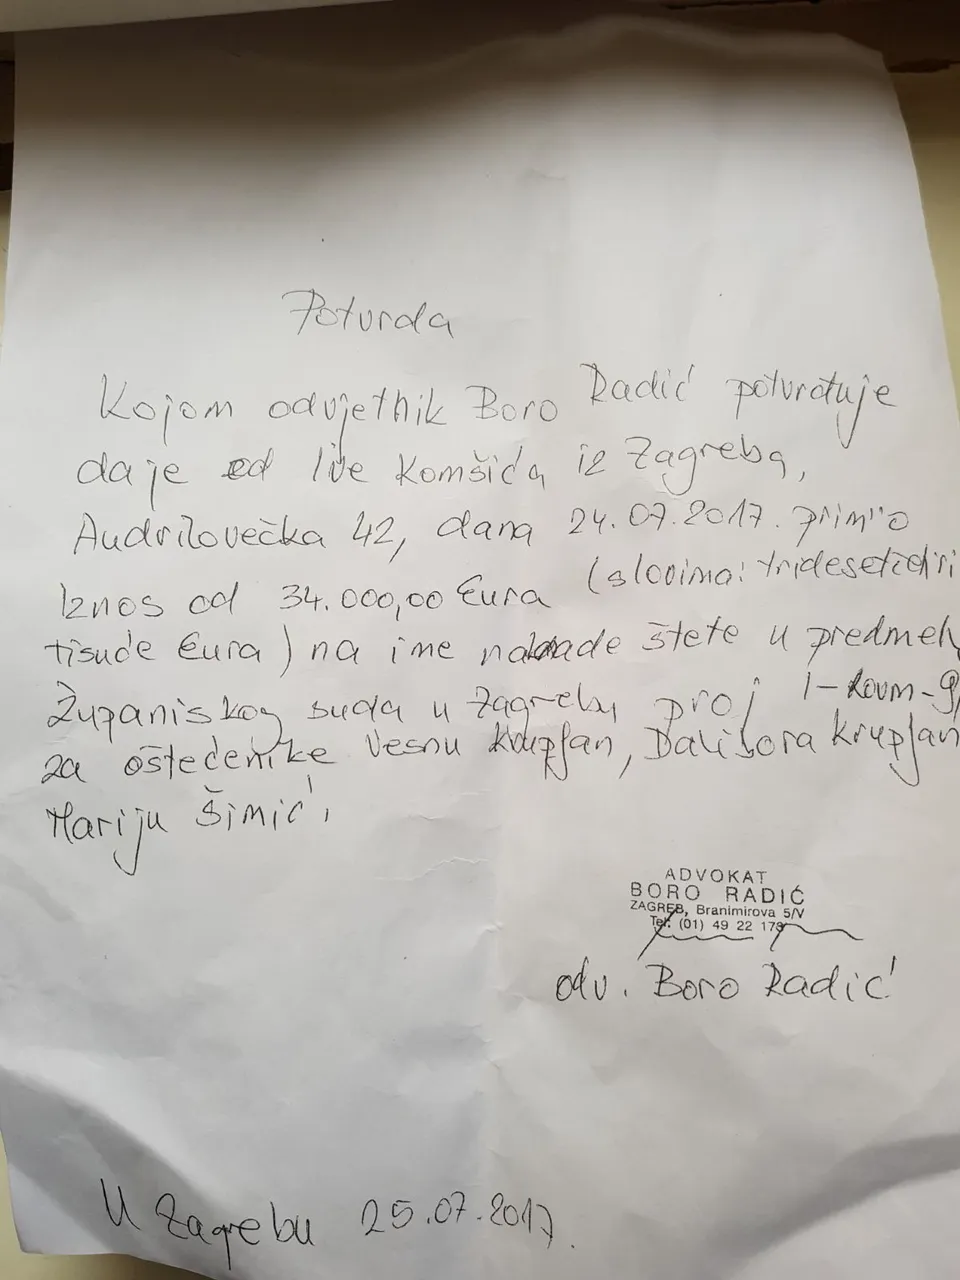 Potvrda
Kojom odvjetnik Boro Radić potvrđuje
da je od Ive Komšića iz Zagreba,
42, dana 24.07.2017. primio
Iznos od 34.000,00 Eura (slovima:
tisuće Eura) na ime naknade štete u
suda u Zagrebu,
za oštećenike Vesnu Krupljan, Dalibora Krupljan
Mariju Šimić,
ADVOKAT
BORO RADIĆ
ZAGREB, Branimirova 5/V
Tel. (01) 49 22 178
odv. Boro Radić
U Zagrebu 25.07.2017.